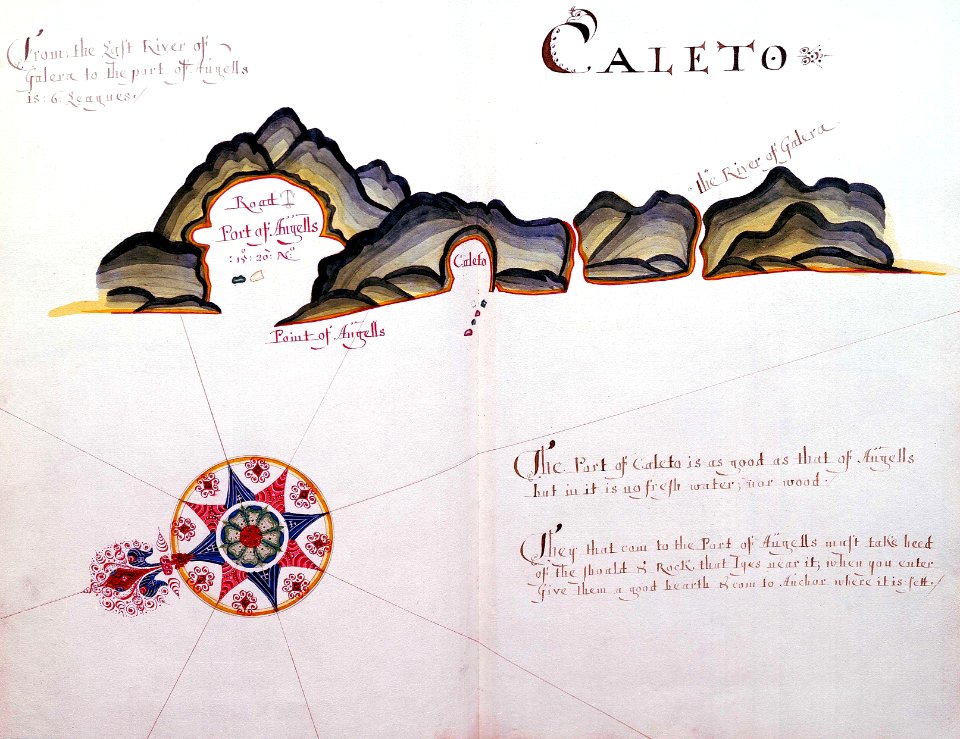 From: the Last River of
Galera to the port of Angells
is: 6: Leagues./
CALETO
the River of Galera
Road
Port of Angells
:15: 20: No:
Caleto
Point of Angells
The Port of Caleto is as good as that of Angells
but in it is no fresh water; nor wood:
They that com to the Port of Angells must take heed
of the shoald & Rock, that lyes near it, when you enter
Give them a good bearth & com to Anchor where it is sett./